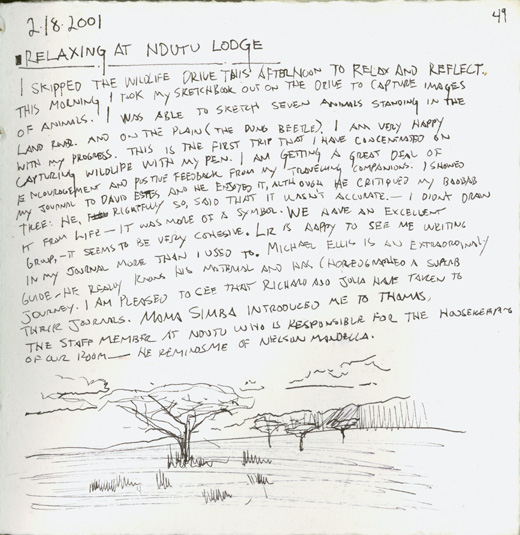 2.18.2001
49
RELAXING AT NDUTU LODGE
I SKIPPED THE WILDLIFE DRIVE THIS AFTERNOON TO RELAX AND REFLECT.
THIS MORNING I TOOK MY SKETCHBOOK OUT ON THE DRIVE TO CAPTURE IMAGES
OF ANIMALS. I WAS ABLE TO SKETCH SEVEN ANIMALS STANDING IN THE
LAND ROVER. AND ON THE PLAIN (THE DUNG BEETLE). I AM VERY HAPPY
WITH MY PROGRESS. THIS IS THE FIRST TRIP THAT I HAVE CONCENTRATED ON
CAPTURING WILDLIFE WITH MY PEN. I AM GETTING A GREAT DEAL OF
ENCOURAGEMENT AND POSTIVE FEEDBACK FROM MY TRAVELING COMPANIONS. I SHOWED
MY JOURNAL TO DAVID ESTES, AND HE ENJOYED IT, ALTHOUGH HE CRITIQUED MY BAOBAB
TREE: HE, RIGHTFULLY SO, SAID THAT IT WASN'T ACCURATE. — I DIDN'T DRAW
IT FROM LIFE — IT WAS MORE OF A SYMBOL. WE HAVE AN EXCELLENT
GROUP, — IT SEEMS TO BE VERY COHESIVE. LIZ IS HAPPY TO SEE ME WRITING
IN MY JOURNAL MORE THAN I USED TO. MICHAEL ELLIS IS AN EXTRAORDINARY
GUIDE — HE REALLY KNOWS HIS MATERIAL AND HAS CHOREOGRAPHED A SUPERB
JOURNEY. I AM PLEASED TO SEE THAT RICHARD AND JULIA HAVE TAKEN TO
THEIR JOURNALS. MAMA SIMBA INTRODUCED ME TO THOMAS,
THE STAFF MEMBER AT NDUTU WHO IS RESPONSIBLE FOR THE HOUSEKEEPING
OF OUR ROOM — HE REMINDS ME OF NIELSON MANDELLA.